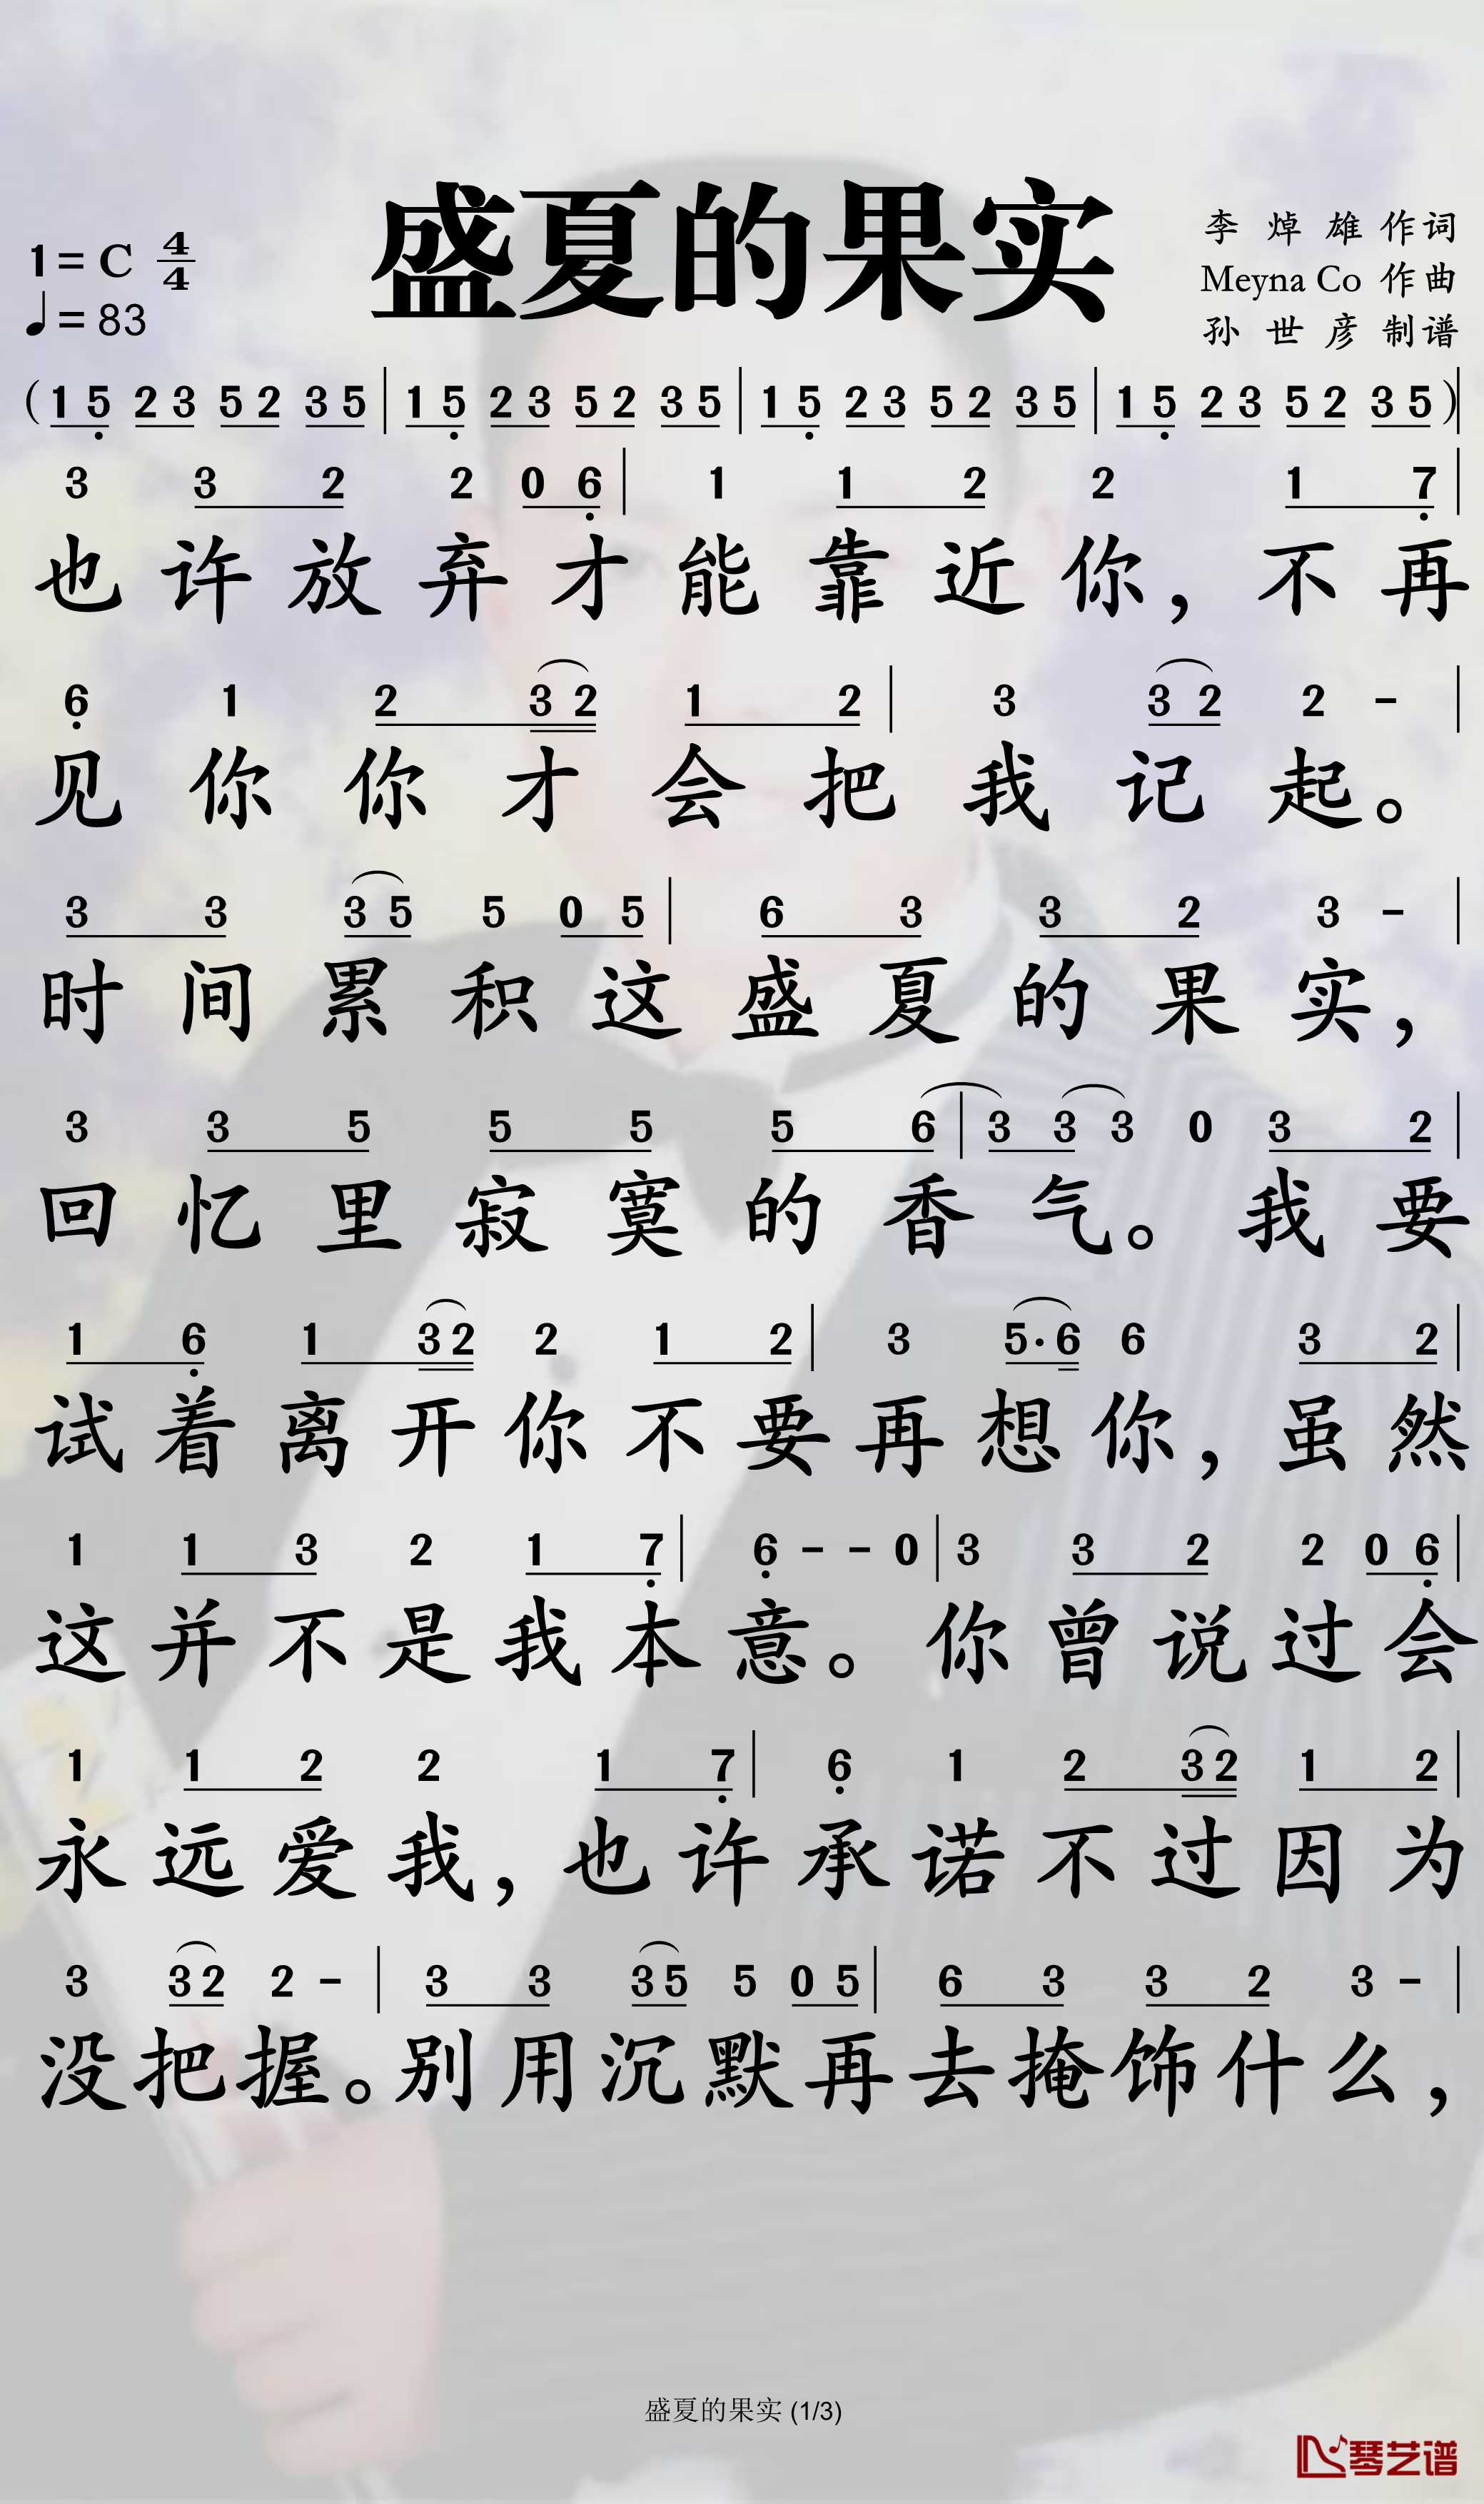 盛夏的果实
1=C 4/4
♩=83
李焯雄 作词
Meyna Co 作曲
孙世彦 制谱
(1 5̣ 2 3 5 2 3 5 | 1 5̣ 2 3 5 2 3 5 | 1 5̣ 2 3 5 2 3 5 | 1 5̣ 2 3 5 2 3 5) |
3 3 2 2 0 6̣ | 1 1 2 2 1 7̣ |
也许放弃才能靠近你，不再
6̣ 1 2 3 2 1 2 | 3 3 2 2 - |
见你你才会把我记起。
3 3 3 5 5 0 5 | 6 3 3 2 3 - |
时间累积这盛夏的果实，
3 3 5 5 5 5 6 | 3 3 3 0 3 2 |
回忆里寂寞的香气。我要
1 6̣ 1 3 2 2 1 2 | 3 5· 6 6 3 2 |
试着离开你不要再想你，虽然
1 1 3 2 1 7̣ | 6̣ - - 0 | 3 3 2 2 0 6̣ |
这并不是我本意。你曾说过会
1 1 2 2 1 7̣ | 6̣ 1 2 3 2 1 2 |
永远爱我，也许承诺不过因为
3 3 2 2 - | 3 3 3 5 5 0 5 | 6 3 3 2 3 - |
没把握。别用沉默再去掩饰什么，
盛夏的果实 (1/3)
琴艺谱